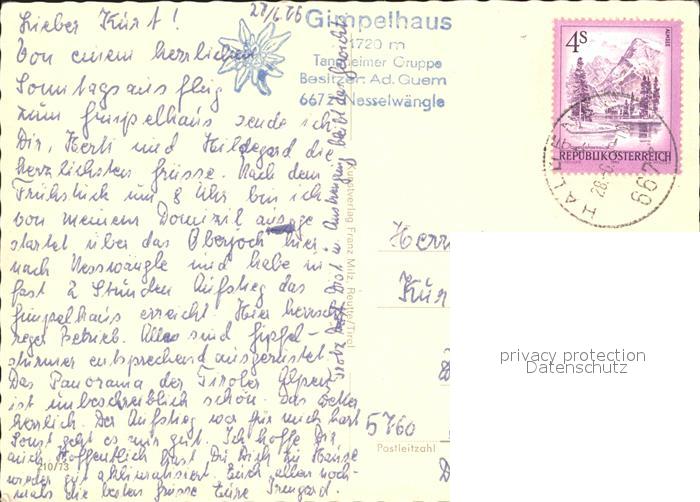 Lieber Kurt!
Von einem herrlichen
Sonntagsausflug
zum Gimpelhaus sende ich
Dir, Herti und Hildegard die
herzlichsten Grüsse. Nach dem
Frühstück um 8 Uhr bin ich
von meinem Domizil ausge
startet über das Oberjoch hier
nach Nesswängle und habe in
fast 2 Stunden Aufstieg das
Gimpelhaus erreicht. Hier herrscht
reger Betrieb. Alles sind Gipfel-
stürmer entsprechend ausgerüstet.
Das Panorama der Tiroler Alpen
ist unbeschreiblich schön. Das Wetter
herrlich. Der Aufstieg war für mich hart
Sonst geht es mir gut. Ich hoffe Dir
auch. Hoffentlich hast Du Dich zu Hause
wieder gut aklimatisiert. Euch allen noch-
mals die besten Grüsse Eure Irmgard.
Trotz Diät Brot u. Anstrengung bleibt das Gewicht
Gimpelhaus
1720 m
Tannheimer Gruppe
Besitzer: Ad. Guem
6672 Nesselwängle
4S
ALMSEE
REPUBLIK ÖSTERREICH
6799
Kunstverlag Franz Milz, Reutte/Tirol
Herrn
Kur
5760
Postleitzahl
210/73
privacy protection
Datenschutz